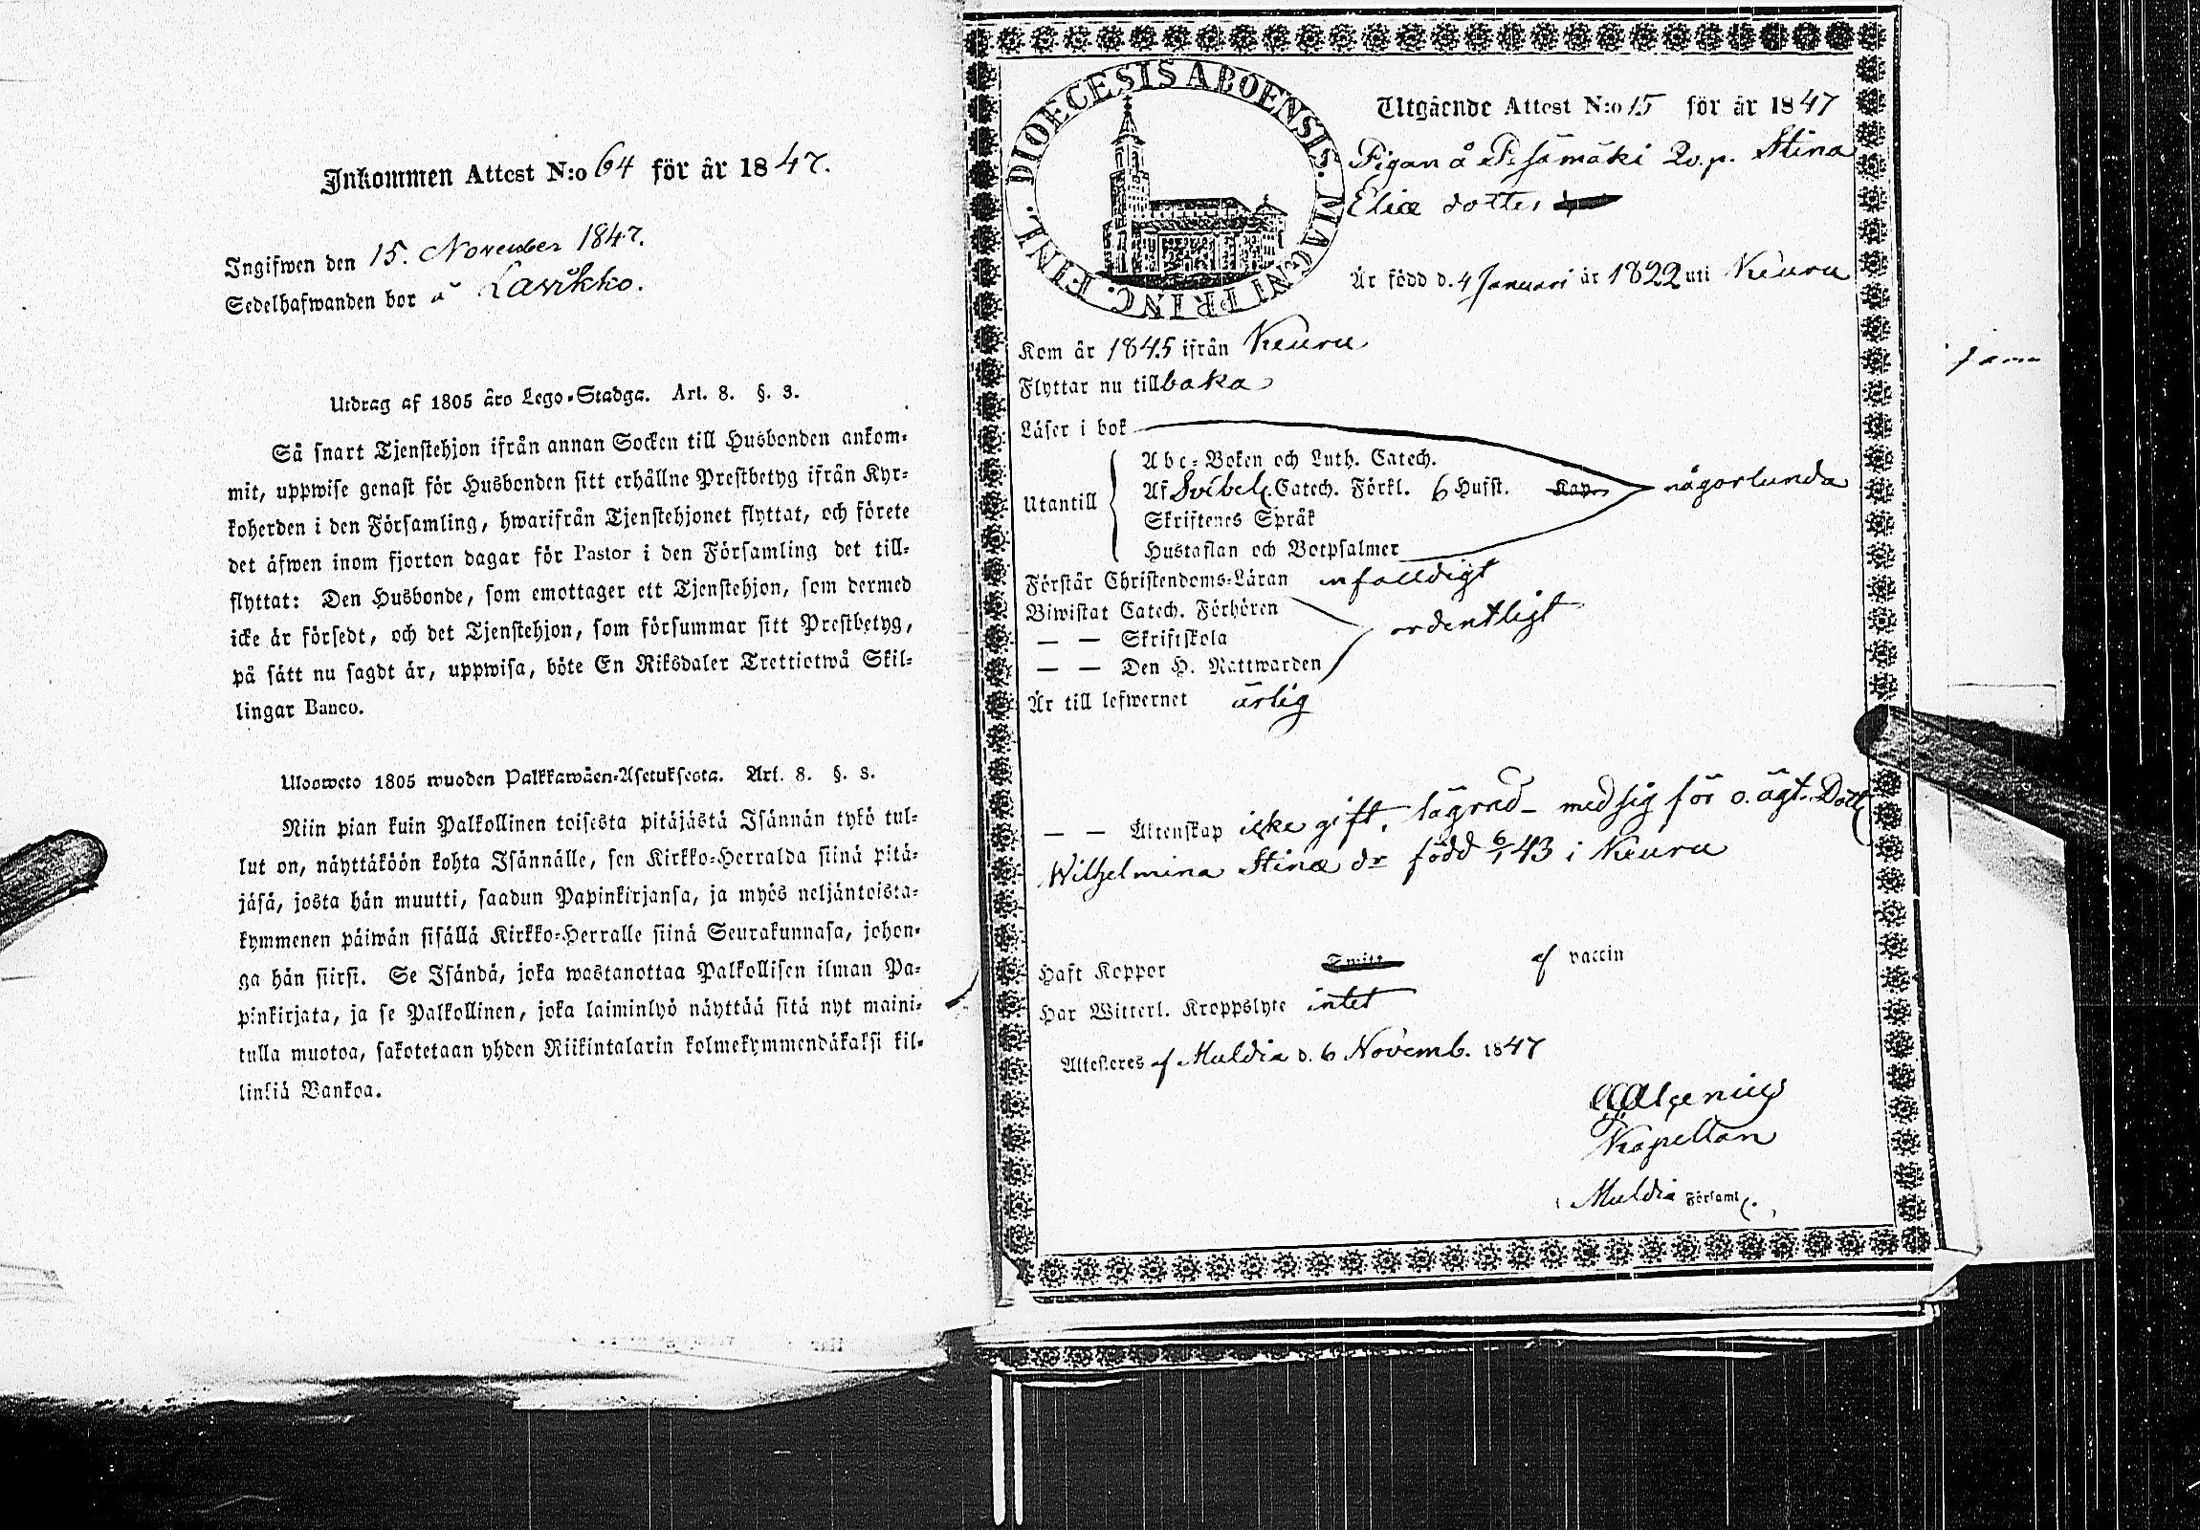 Inkommen Attest N:o 64 för år 1847.
Ingifwen den 15. November 1847.
Sedelhafwanden bor å Lavikko.
Utdrag af 1805 års Lego-Stadga. Art. 8. §. 3.
Så snart Tjenstehjon ifrån annan Socken till Husbonden ankom-
mit, uppwise genast för Husbonden sitt erhållne Prestbetyg ifrån Kyr-
koherden i den Församling, hwarifrån Tjenstehjonet flyttat, och förete
det äfwen inom fjorton dagar för Pastor i den Församling det till-
flyttat: Den Husbonde, som emottager ett Tjenstehjon, som dermed
icke är försedt, och det Tjenstehjon, som försummar sitt Prestbetyg,
på sätt nu sagdt är, uppwisa, böte En Riksdaler Trettiotwå Skil-
lingar Banco.
Ulosweto 1805 wuoden Palkkawäen-Asetuksesta. Art. 8. §. 3.
Niin pian kuin Palkollinen toisesta pitäjästä Isännän tykö tul-
lut on, näyttäköön kohta Isännälle, sen Kirkko-Herralda siinä pitä-
jäsä, josta hän muutti, saadun Papinkirjansa, ja myös neljäntoista-
kymmenen päiwän sisällä Kirkko-Herralle siinä Seurakunnasa, johon-
ga hän siirsi. Se Isändä, joka wastanottaa Palkollisen ilman Pa-
pinkirjata, ja se Palkollinen, joka laiminlyö näyttää sitä nyt maini-
tulla muotoa, sakotetaan yhden Riikintalarin kolmekymmendäkaksi kil-
linkiä Bankoa.
DIOECESIS ABOENSIS. MAGNI PRINC. FINL.
Utgående Attest N:o 15 för år 1847
Pigan å Pesämäki Qv.p. Stina
Eliæ dotter
Är född d. 4 Januari år 1822 uti Keuru
Kom år 1845 ifrån Keuru
Flyttar nu tillbaka
Läser i bok
Abc-Boken och Luth. Catech.
Utantill Af Svebel. Catech. Förkl. 6 Hufst. Kap. någorlunda
Skriftenes Språk
Hustaflan och Botpsalmer
Förstår Christendoms-Läran enfalldigt
Biwistat Catech. Förhören
— — Skriftskola ordentligt
— — Den H. Nattwarden
Är till lefwernet ärlig
— — Äktenskap icke gift, lägrad - med sig för o. ägt. Dott
Wilhelmina Stinæ dr född 6/1 43 i Keuru
Haft Koppor af vaccin
Har Witterl. Kroppslyte intet
Attesteres af Muldia d. 6 Novemb. 1847
Kapellan
i Muldia Församl.